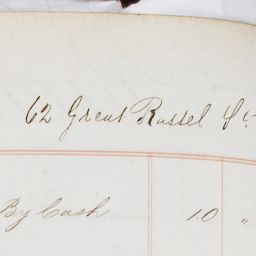 62 Great Russel St
By Cash 10 "